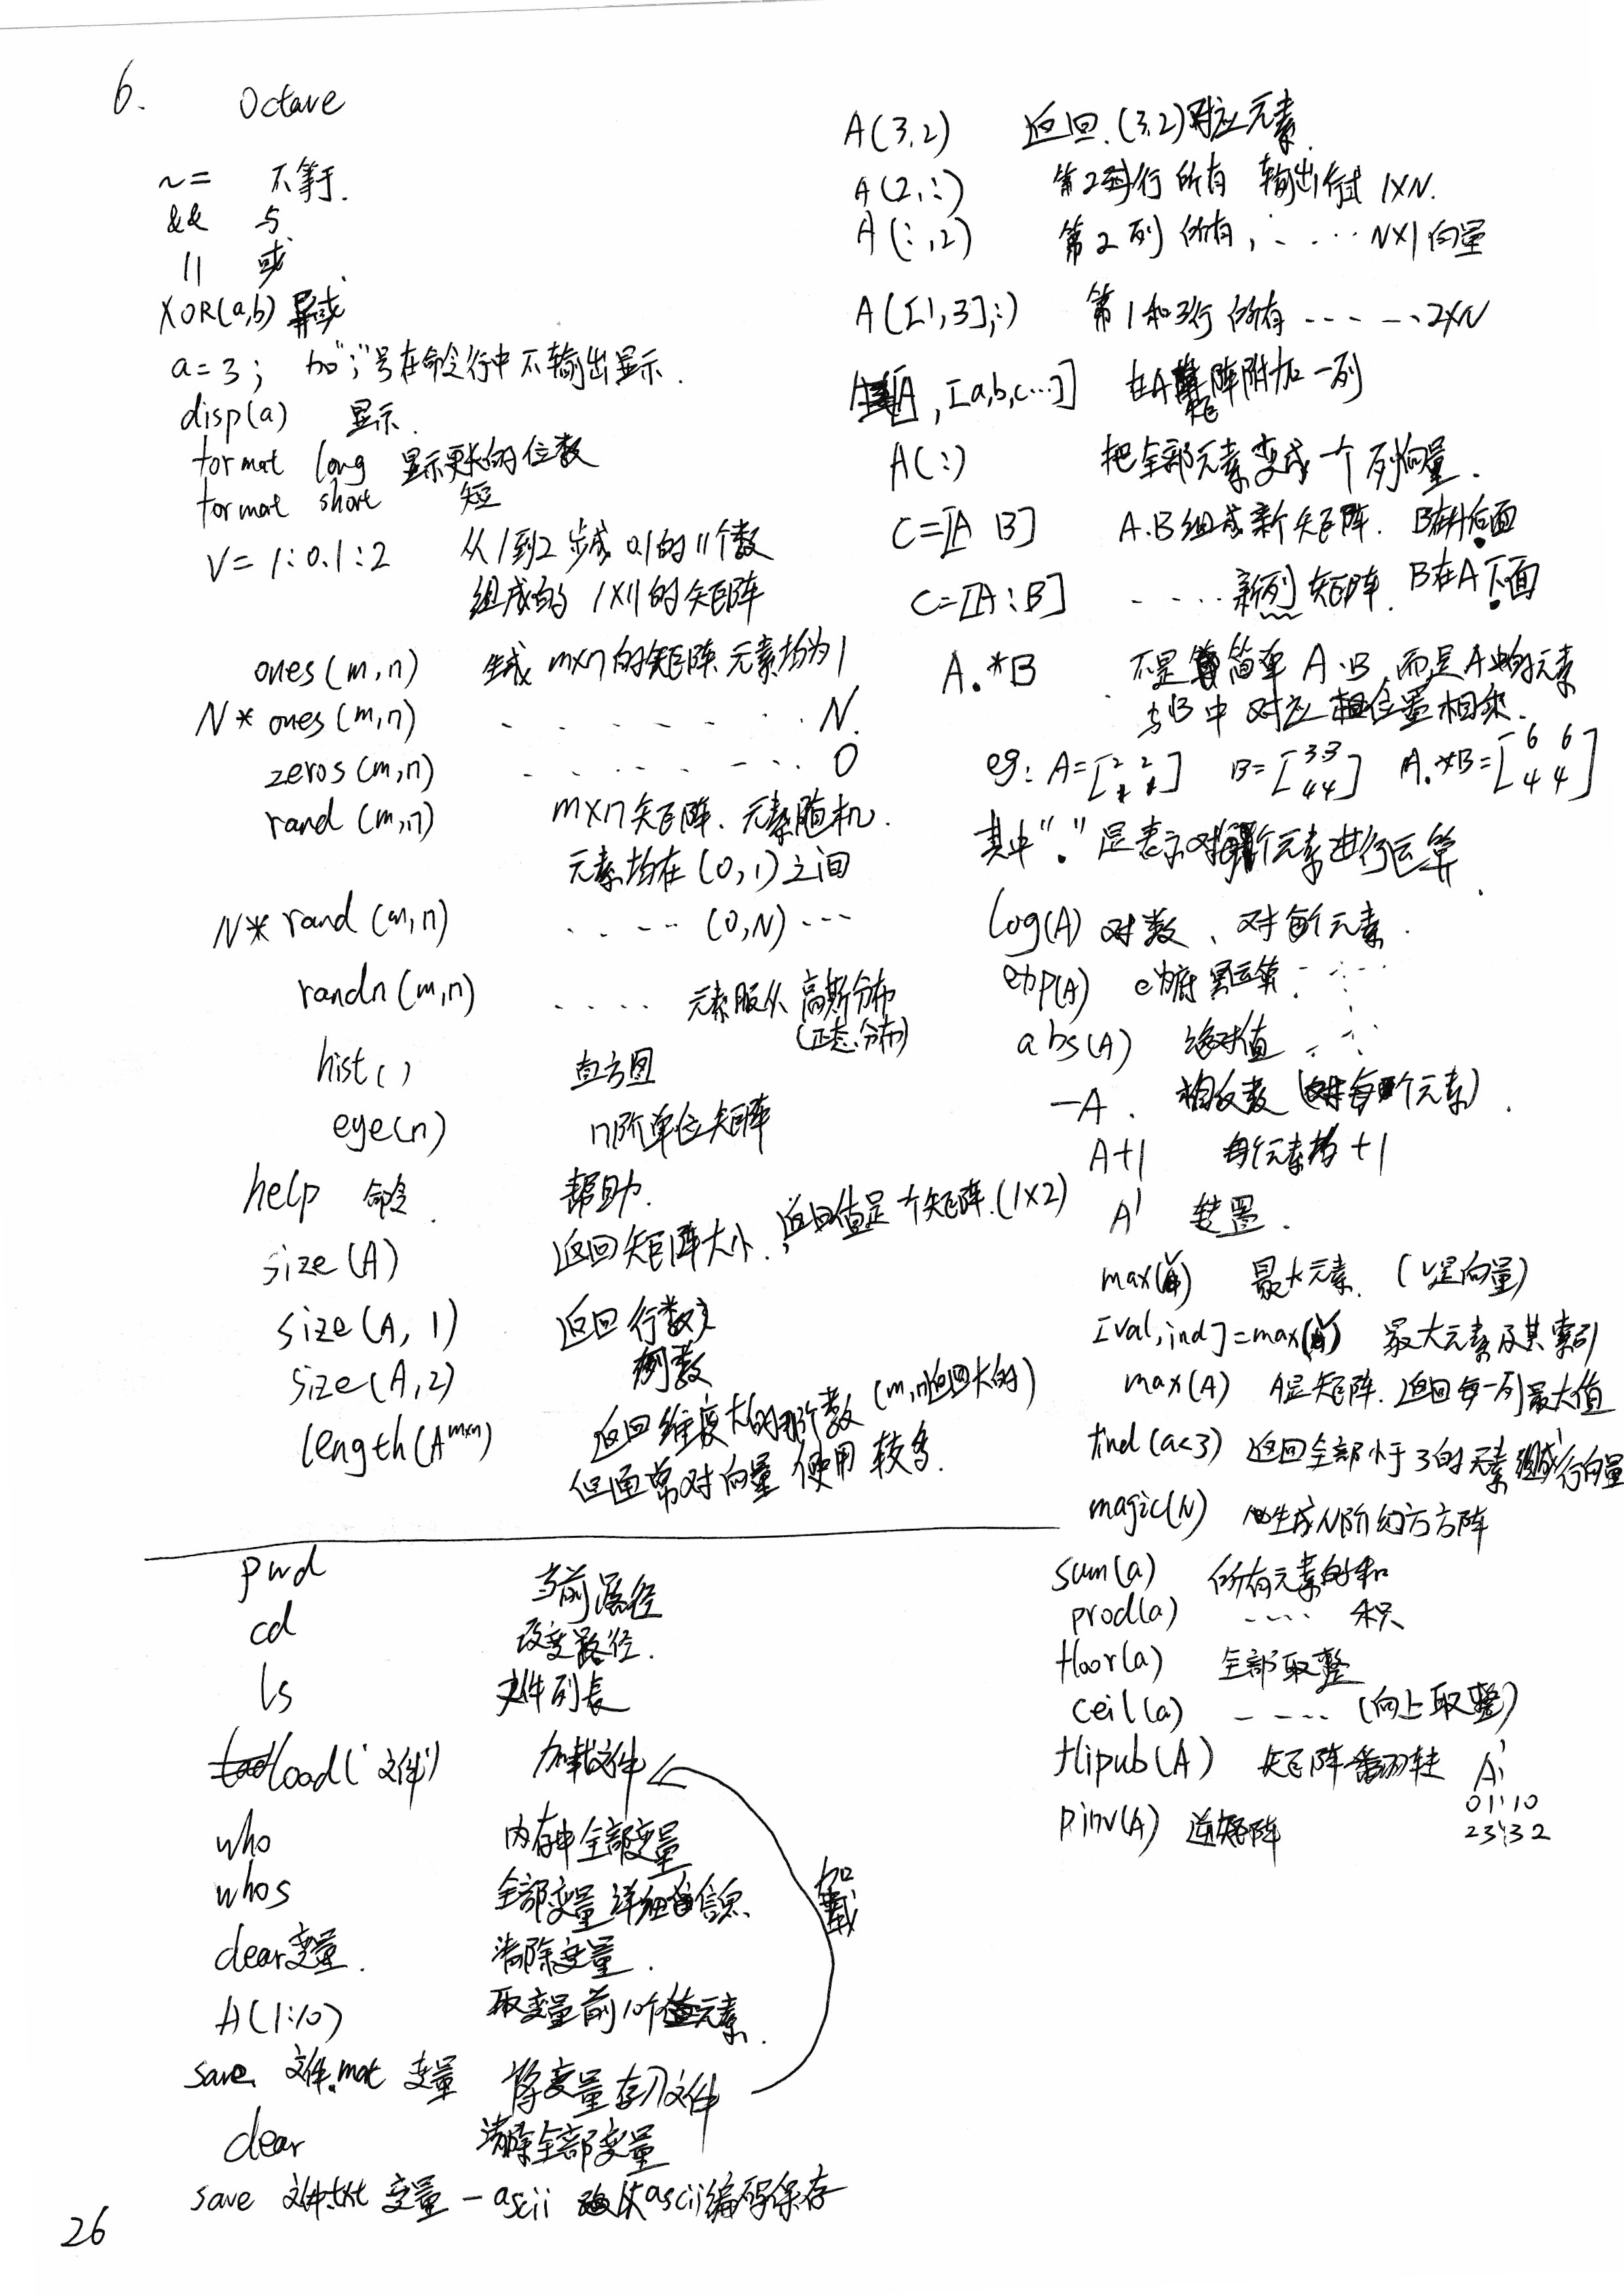 6. Octave
~= 不等于.
&& 与
|| 或
XOR(a,b) 异或
a=3; 加";"号在命令行中不输出显示.
disp(a) 显示.
format long 显示更长的位数
format short 短
V=1:0.1:2 从1到2步长0.1的11个数
组成的1×11的矩阵
ones(m,n) 生成m×n的矩阵 元素均为1
N*ones(m,n) - - - - - - - N.
zeros(m,n) - - - - - - - 0
rand(m,n) m×n矩阵、元素随机.
元素均在(0,1)之间
N*rand(m,n) ..--- (0,N) ---
randn(m,n) .... 元素服从 高斯分布
(正态分布)
hist() 直方图
eye(n) n阶单位矩阵
help 命令. 帮助.
size(A) 返回矩阵大小.,返回值是个矩阵.(1×2)
size(A,1) 返回行数
size(A,2) 列数
length(A^{m×n}) 返回维度大的那个数(m,n返回大的)
但通常对向量使用较多.
pwd 当前路径
cd 改变路径.
ls 文件列表
load('文件') 加载文件
who 内存中全部变量
whos 全部变量详细信息
加载
clear变量. 清除变量.
A(1:10) 取变量前10个元素.
save 文件.mat 变量 将变量存入文件
clear 清除全部变量
save 文件.txt 变量 -ascii 以ascii编码保存
26
A(3,2) 返回(3,2)对应元素.
A(2,:) 第2行所有 输出 1×N.
A(:,2) 第2列所有, - - - - - N×1向量
A([1,3],:) 第1和3行所有 - - - - - 2×N
[A,[a,b,c…]] 在A矩阵附加一列
A(:) 把全部元素变成一个列向量.
C=[A B] A.B组成新矩阵. B在A后面
C=[A:B] - ···· 新列矩阵. B在A下面
A.*B 不是简单A·B,而是A中的元素
与B中对应位置相乘.
eg: A=[2 2 B=[33 A.*B=[6 6
] 44] 4 4]
其中"."是表示对每个元素进行运算.
log(A) 对数、对每个元素.
exp(A) e为底 幂运算. - - -
abs(A) 绝对值 . .
-A. 相反数(对每个元素).
A+1 每个元素均+1
A' 转置.
max(V) 最大元素. (V是向量)
[val,ind]=max(V) 最大元素及其索引
max(A) A是矩阵.返回每一列最大值
find(a<3) 返回全部小于3的元素 组成行向量
magic(N) 生成N阶幻方方阵
sum(a) 所有元素的和
prod(a) ---- 积
floor(a) 全部取整
ceil(a) - - --- (向上取整)
flipub(A) 矩阵翻转 A'
01:10
pinv(A) 逆矩阵 23:32